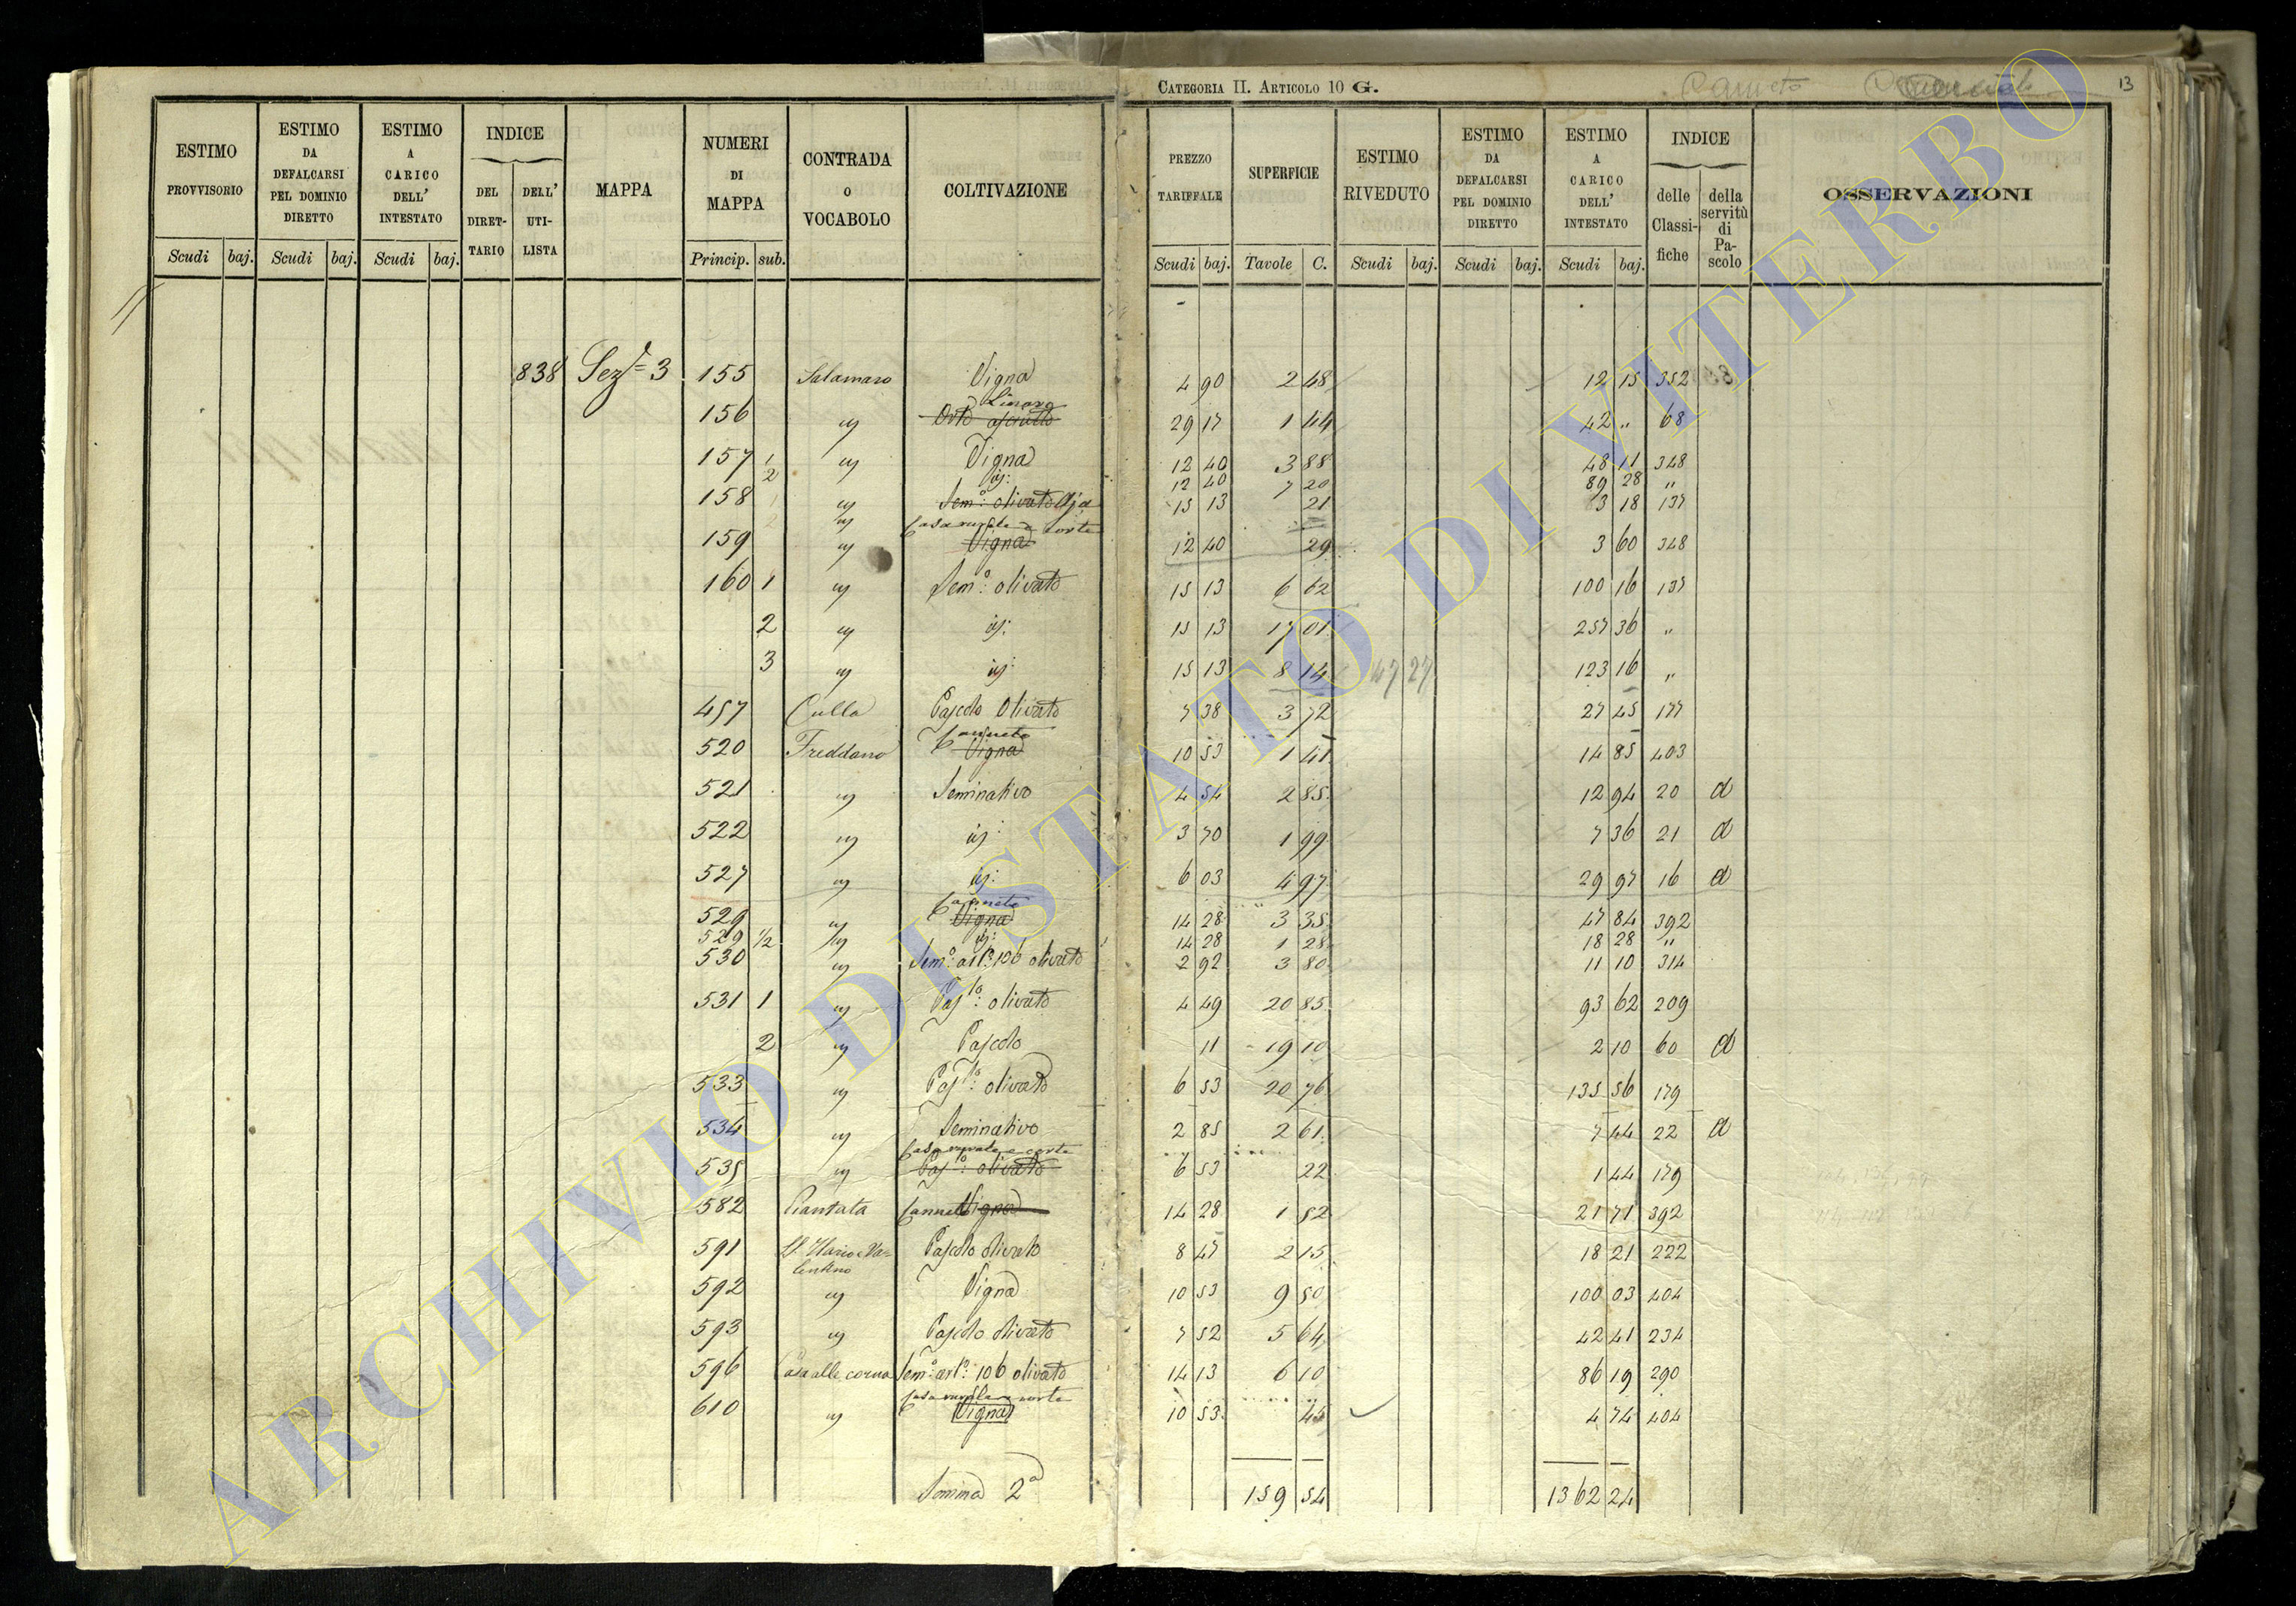 CATEGORIA II. ARTICOLO 10 G. Canneto 13
ESTIMO PROVVISORIO Scudi baj. ESTIMO DA DEFALCARSI PEL DOMINIO DIRETTO Scudi baj. ESTIMO A CARICO DELL' INTESTATO Scudi baj. INDICE DEL DIRET-TARIO DELL' UTI-LISTA MAPPA NUMERI DI MAPPA Princip. sub. CONTRADA o VOCABOLO COLTIVAZIONE PREZZO TARIFFALE Scudi baj. SUPERFICIE Tavole C. ESTIMO RIVEDUTO Scudi baj. ESTIMO DA DEFALCARSI PEL DOMINIO DIRETTO Scudi baj. ESTIMO A CARICO DELL' INTESTATO Scudi baj. INDICE delle Classi-fiche della servitù di Pa-scolo OSSERVAZIONI
838 Sez.e 3 155 Salamaro Vigna 4 90 2 48 12 15 352
156 " Linaro Orto asciutto 29 17 1 44 42 " 68
157 1 " Vigna 12 40 3 88 48 11 348
2 id: 12 40 7 20 89 28 "
158 " Sem.o olivato Aja 15 13 21 3 18 137
" Casa rurale e corte
159 " Vigna 12 40 29 3 60 348
160 1 " Sem.o olivato 15 13 6 62 100 16 137
2 " id: 15 13 17 01 257 36 "
3 " id: 15 13 8 14 47 27 123 16 "
457 Culla Pascolo Olivato 7 38 3 72 27 45 177
520 Freddano Canneto Vigna 10 53 1 41 14 85 403
521 " Seminativo 4 54 2 85 12 94 20 a
522 " id: 3 70 1 99 7 36 21 a
527 " id: 6 03 4 97 29 97 16 a
529 " Canneto Vigna 14 28 3 35 47 84 392
529 1/2 " id: 14 28 1 28 18 28 "
530 " Sem.o art.o 106 olivato 2 92 3 80 11 10 314
531 1 " Pas.lo olivato 4 49 20 85 93 62 209
2 " Pascolo 11 19 10 2 10 60 a
533 " Pas.lo olivato 6 53 20 76 135 56 179
534 " Seminativo 2 85 2 61 7 44 22 a
535 " Casa rurale e corte Pas.lo olivato 6 53 22 1 44 179
582 Piantata Canneto Vigna 14 28 1 52 21 71 392
591 S. Ilario e Va=lentino Pascolo olivato 8 47 2 15 18 21 222
592 " Vigna 10 53 9 50 100 03 404
593 " Pascolo olivato 7 52 5 64 42 41 234
596 Casalle corna Sem.o art.o 106 olivato 14 13 6 10 86 19 290
610 " Casa rurale e corte Vigna 10 53 45 4 74 404
Somma 2a 159 54 1362 24
ARCHIVIO DI STATO DI VITERBO